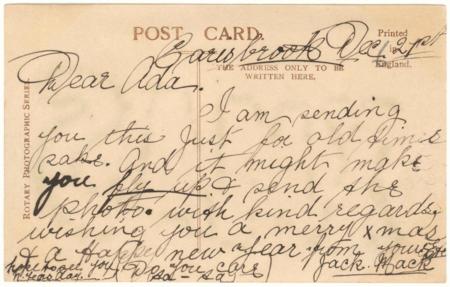 POST CARD.
Printed
in
England.
Carisbrook Dec 21st
THE ADDRESS ONLY TO BE
WRITTEN HERE.
ROTARY PHOTOGRAPHIC SERIES
Dear Ada.
I am sending
you this just for old time
sake. And it might make
you fly up & send the
photo. with kind regards
wishing you a merry xmas
& a Happy new year from yours
Jack. Mack
hope to get you
Do you care